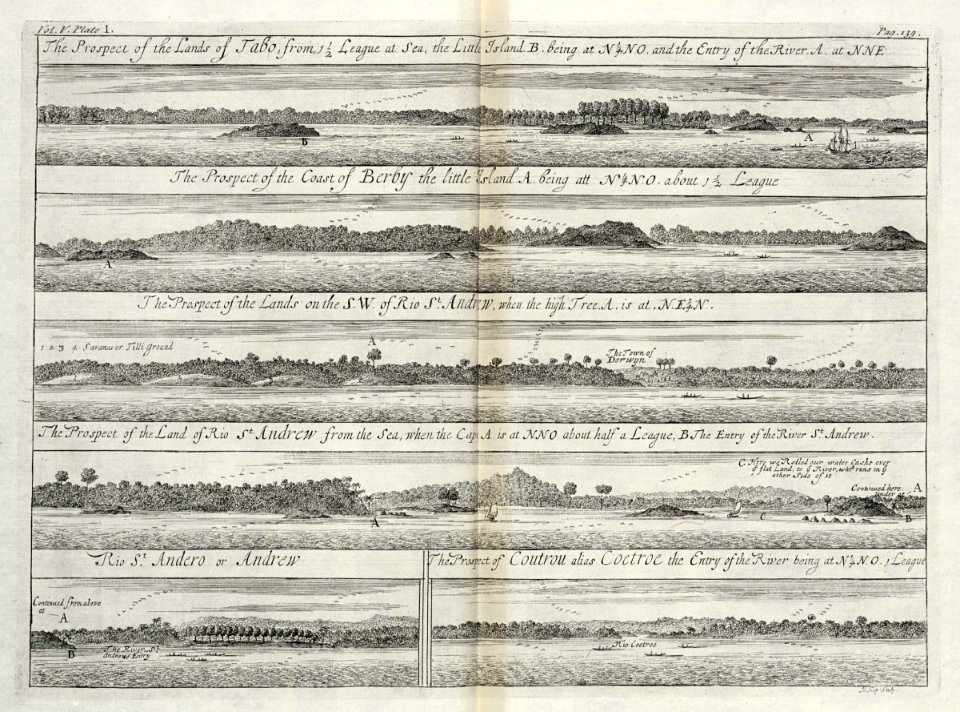 Vol. V. Plate I.
Pag. 139.
The Prospect of the Lands of Tabo, from 1½ League at Sea, the Little Island B. being at N¼NO, and the Entry of the River A. at NNE
B
A
The Prospect of the Coast of Berby the little Island A. being att N¼NO. about 1½ League
A
The Prospect of the Lands on the SW of Rio St. Andrew, when the high Tree A. is at, NE¼N.
1 2 3 4 Savanes or Tilli Ground
A
The Town of
Derwyn
The Prospect of the Land of Rio St Andrew from the Sea, when the Cape A is at NNO about half a League, B The Entry of the River St Andrew.
C. Here we Rolled our water Caske over
y flat Land, to y River, which runs in y
other Side of it
Continued here
under at
A
A
C
B
Rio St. Andero or Andrew
The Prospect of Coutrou alias Coetroe the Entry of the River being at N¼NO. 1 League
Continued from above
at
A
B
The River St.
Andrews Entry
Rio Coetroe
J. Kip Sculp